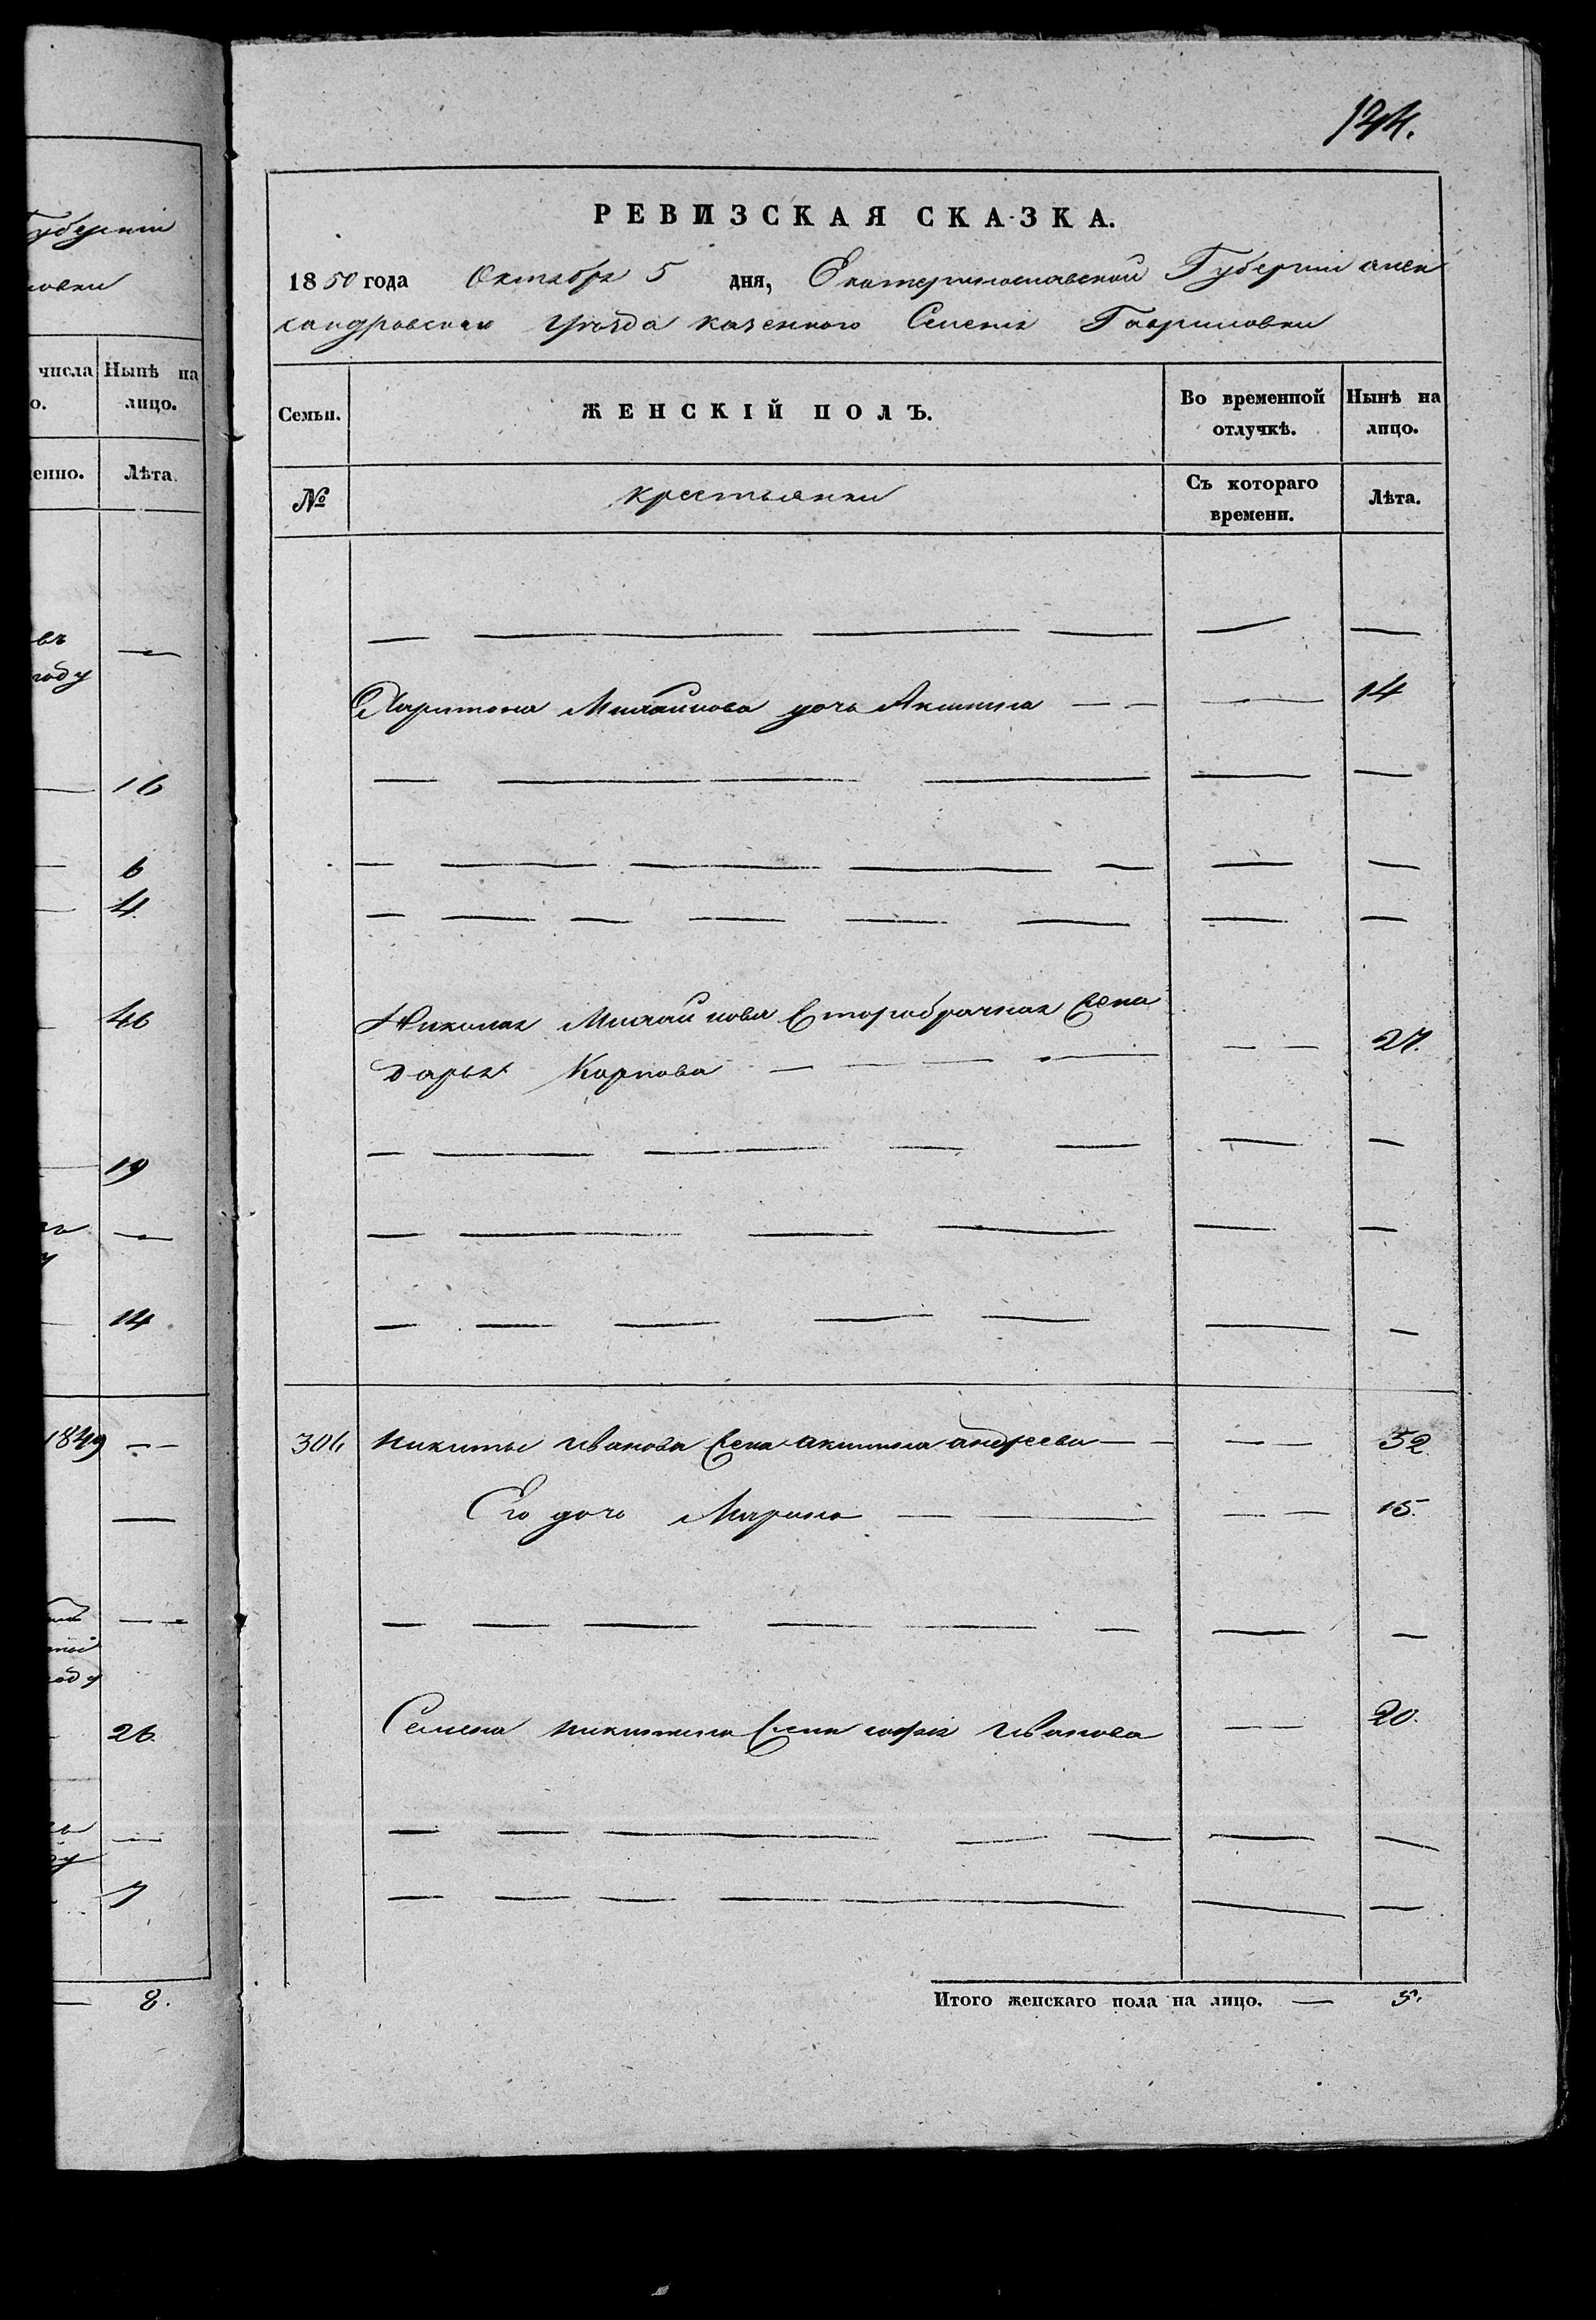 Губерніи
овки
числа Нынѣ на
о. лицо.
енно. Лѣта.
въ —
году
16
6
4.
46
19
14
1849 —
26.
7
8.
134.
РЕВИЗСКАЯ СКАЗКА.
1850 года Октября 5 дня, Екатеринославской Губерніи алек
сандровскаго уѣзда казенного Селенія Гавриловки
Семьи. ЖЕНСКІЙ ПОЛЪ. Во временной отлучкѣ. Нынѣ на лицо.
№ крестьянки Съ котораго времени. Лѣта.
Харитона Михайлова дочь Акилина — — — — 14
Николая Михайлова второбрачная жена
Дарья Карпова — — — — — 27.
306 Никиты Иванова жена акилина андреева — — — — 52
Его дочь Марина — — — — 15.
Семена никитина жена софія Иванова — — 20.
Итого женскаго пола на лицо. — 5.